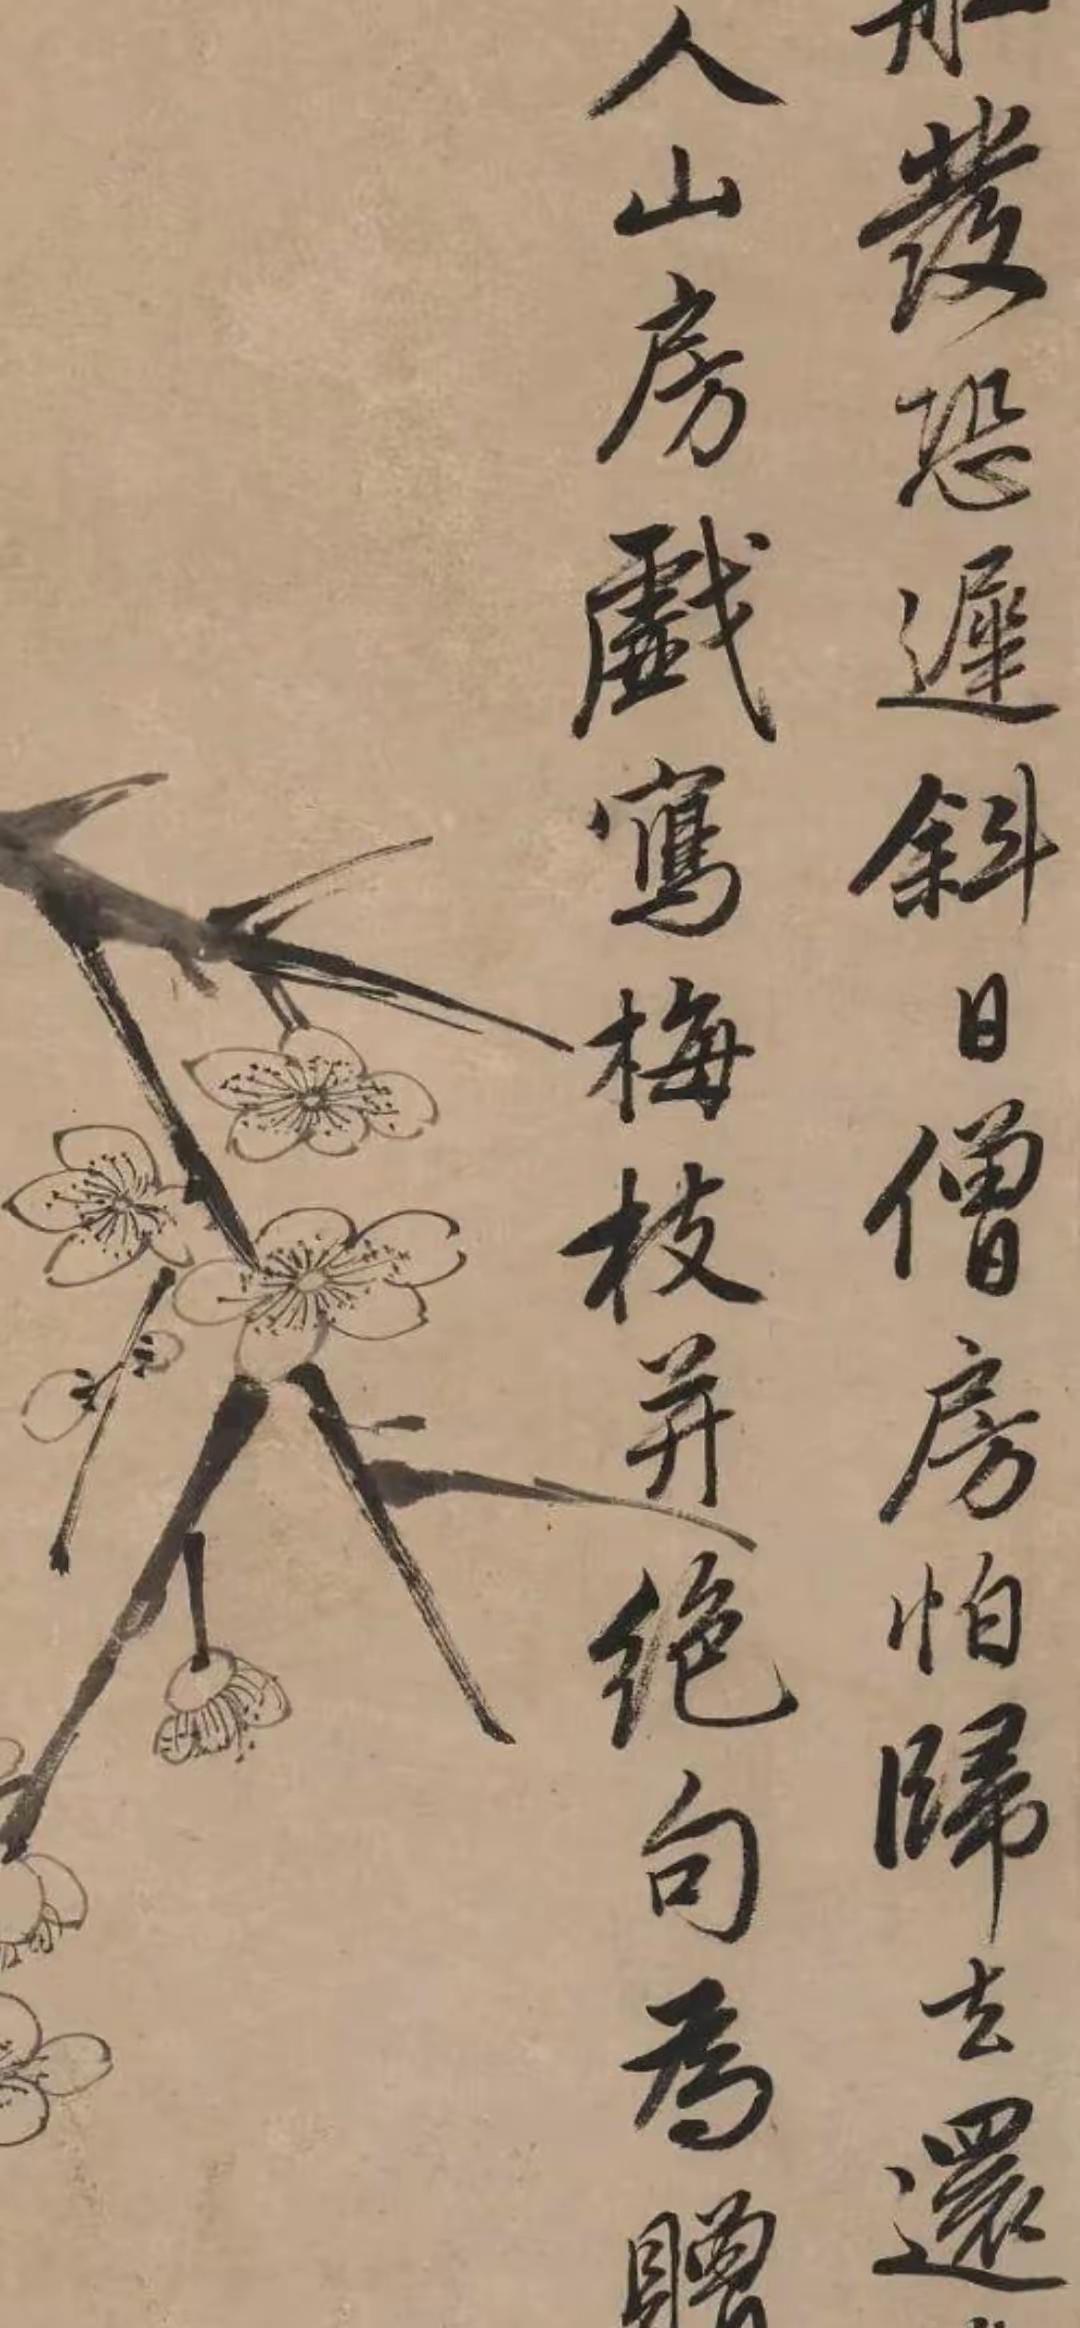 發恐遲斜日僧房怕歸去還
人山房戲寫梅枝并絕句為贈